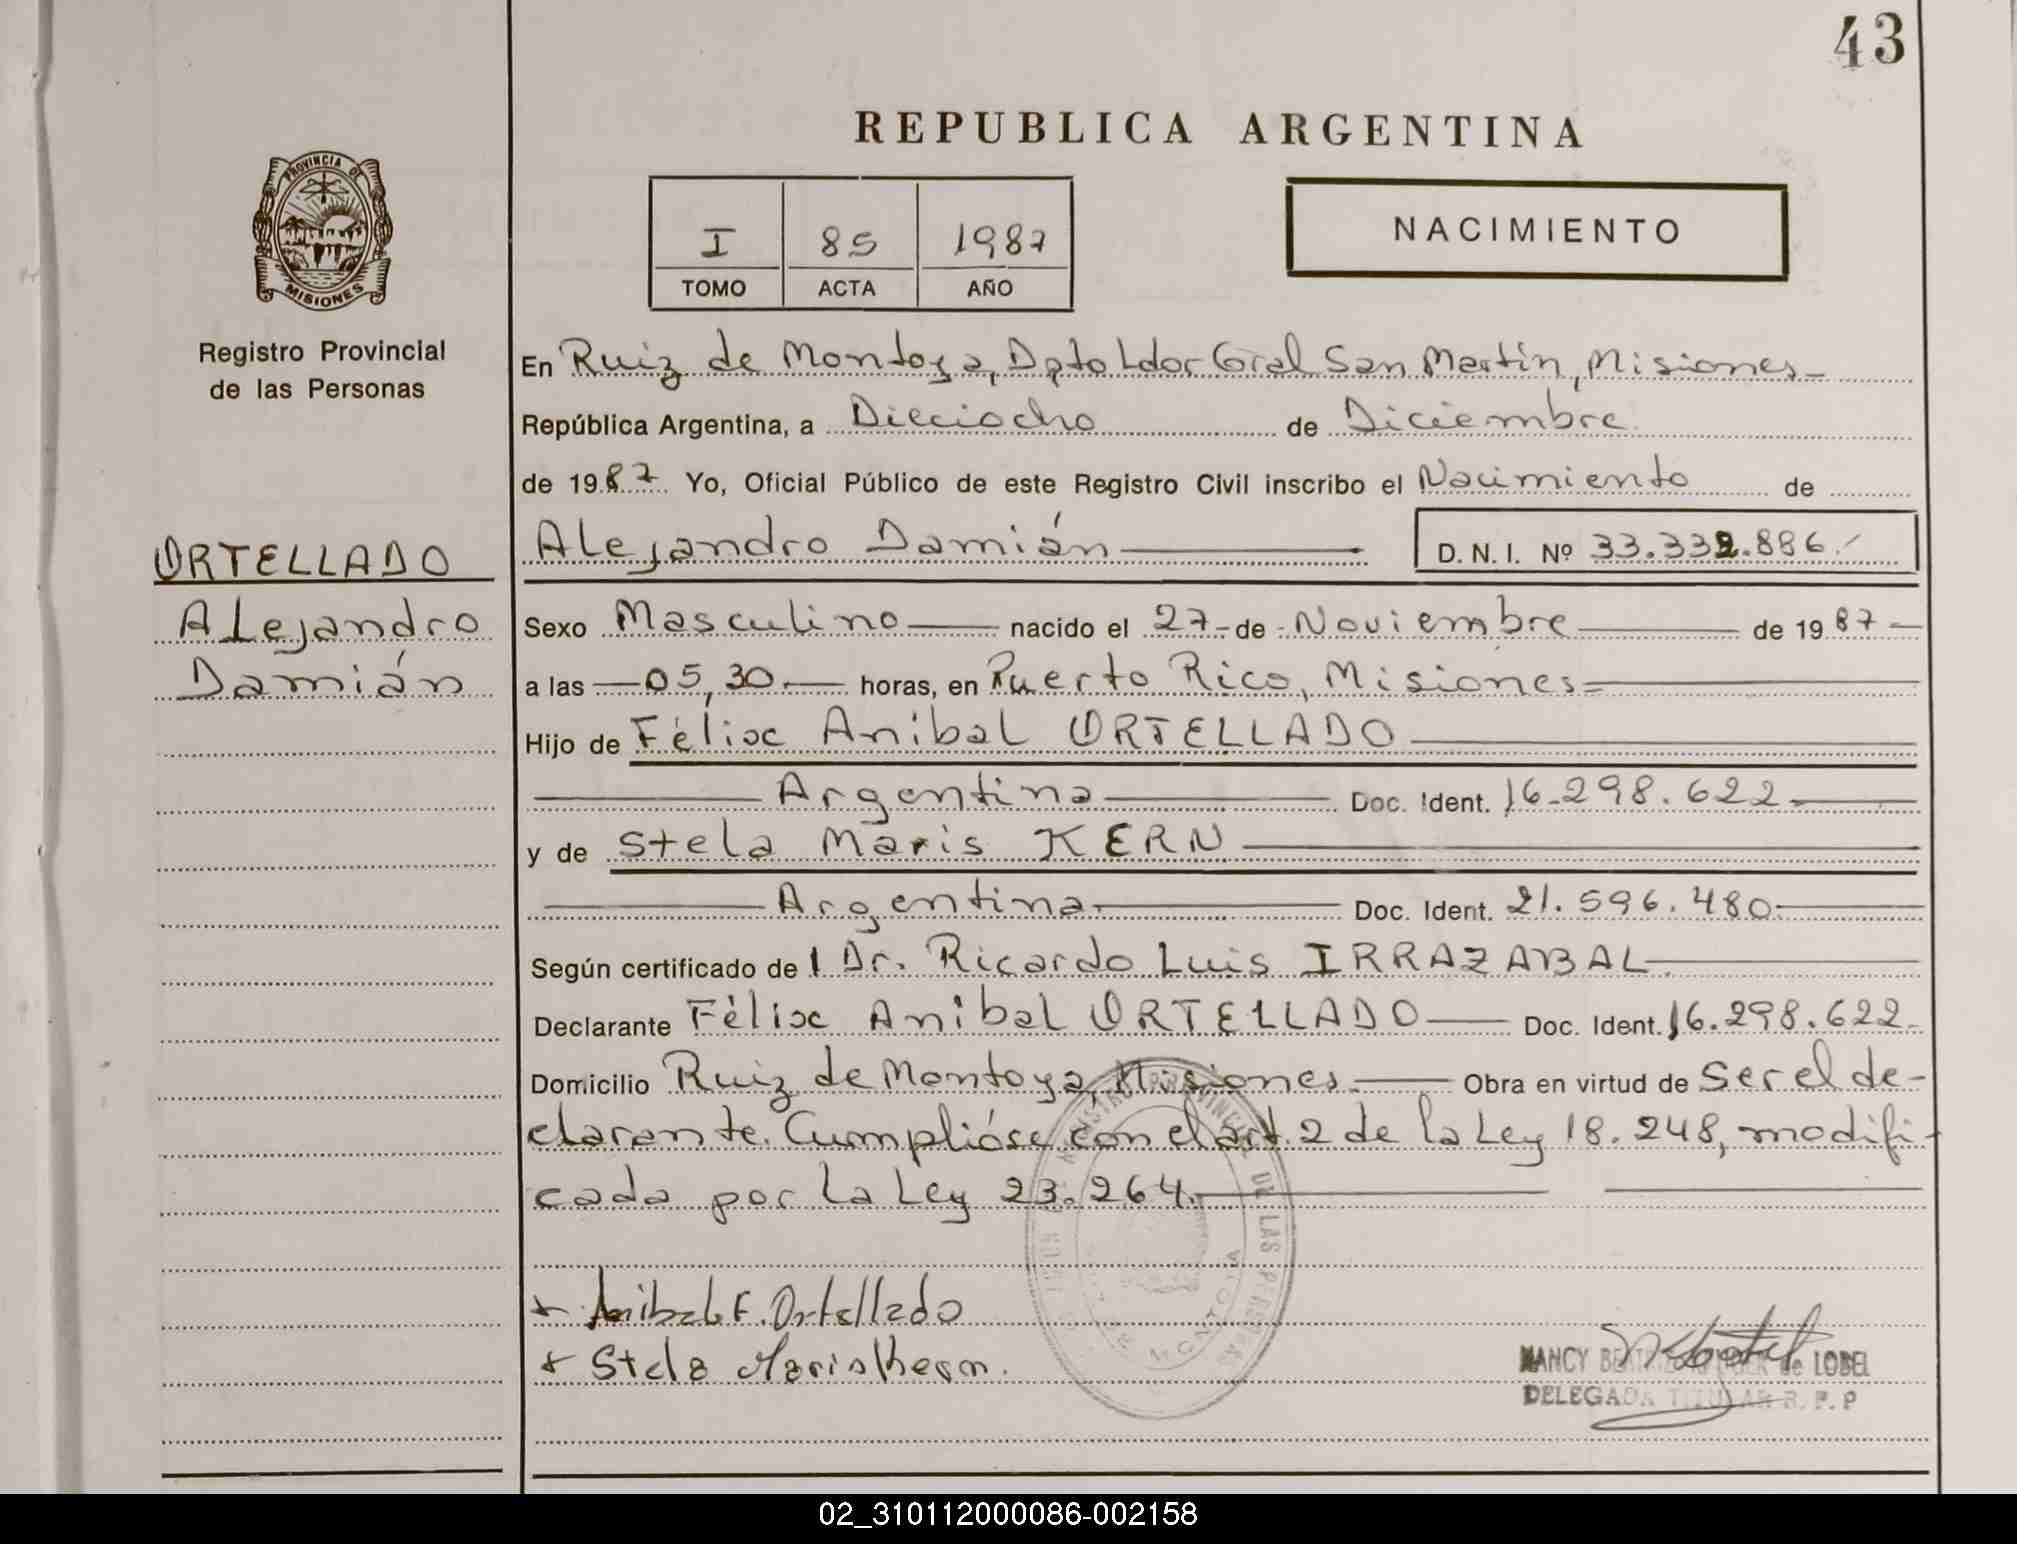 43
REPUBLICA ARGENTINA
PROVINCIA DE
MISIONES
I 85 1987
TOMO ACTA AÑO
NACIMIENTO
Registro Provincial
de las Personas
En Ruiz de Montoya, Dpto Ldor Gral San Martín, Misiones
República Argentina, a Dieciocho de Diciembre
de 1987 Yo, Oficial Público de este Registro Civil inscribo el Nacimiento de
ORTELLADO
Alejandro
Damián
Alejandro Damián D. N. I. Nº 33.332.886.
Sexo Masculino nacido el 27 de Noviembre de 1987
a las 05,30 horas, en Puerto Rico, Misiones
Hijo de Félix Anibal ORTELLADO
Argentina Doc. Ident. 16.298.622
y de Stela Maris KERN
Argentina Doc. Ident. 21.596.480
Según certificado de l Dr. Ricardo Luis IRRAZABAL
Declarante Félix Anibal ORTELLADO Doc. Ident. 16.298.622
Domicilio Ruiz de Montoya, Misiones Obra en virtud de ser el de-
clarante. Cumplióse con el art. 2 de la Ley 18.248, modifi-
cada por la Ley 23.264.
Anibal F. Ortellado
Stela Maris Kern.
NANCY de LOBEL
DELEGADA TITULAR R. P. P
02_310112000086-002158